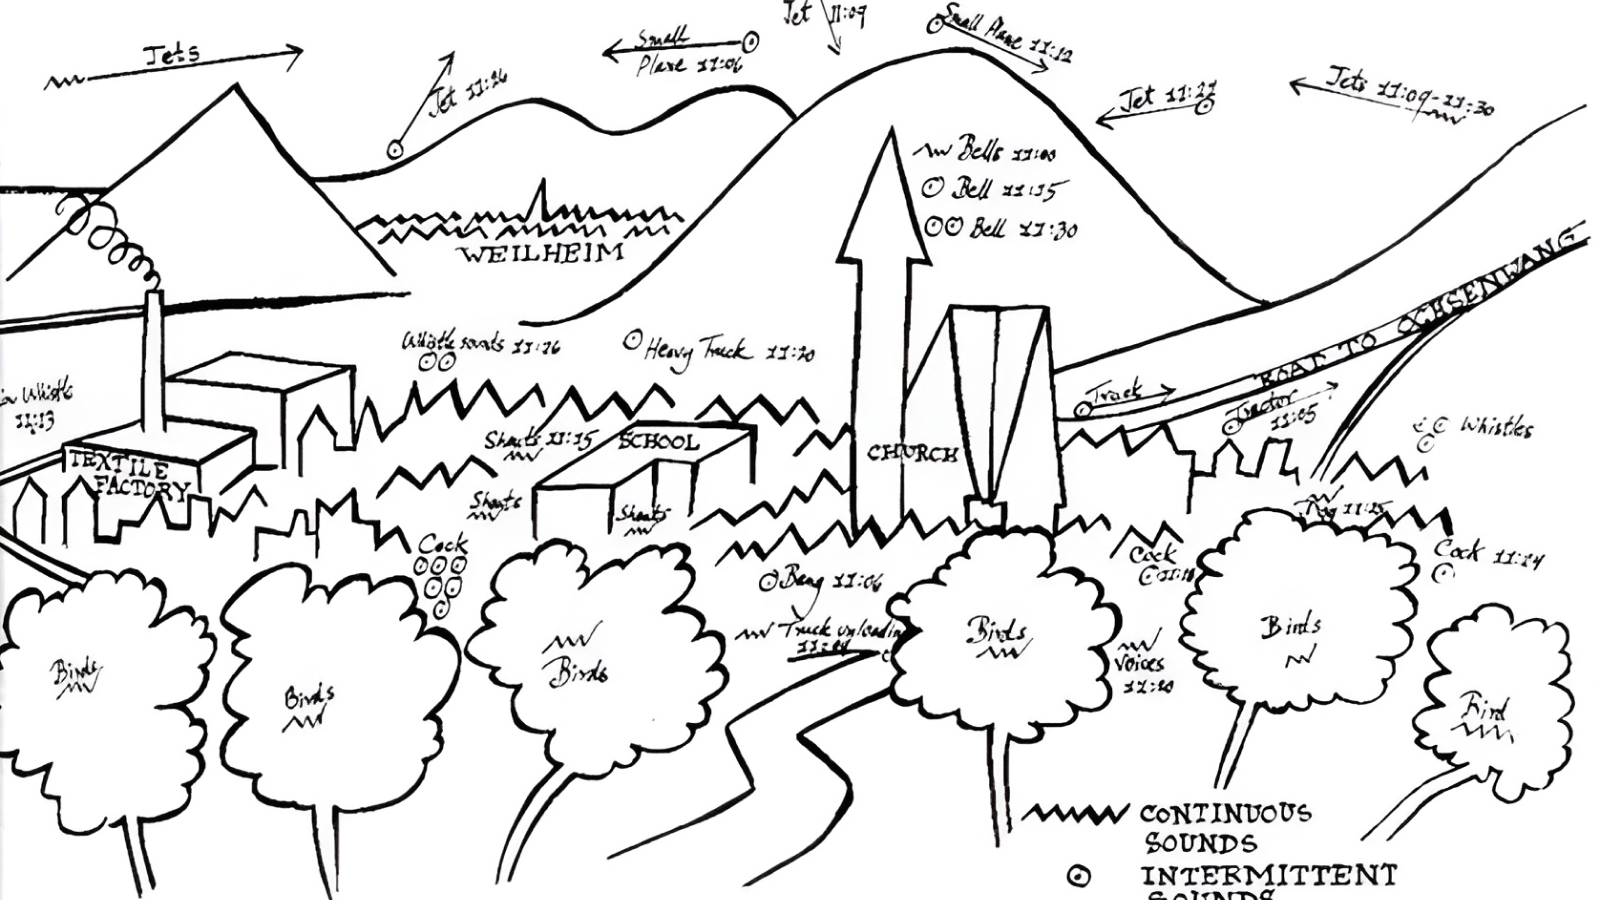 Jets
Jet 11:26
Small
Plane 11:06
Jet 11:09
Small Plane 11:12
Jet 11:27
Jets 11:09-11:30
Bells 11:00
Bell 11:15
Bell 11:30
WEILHEIM
ROAD TO OCHSENWANG
Whistle sounds
Heavy Truck 11:20
Whistle
11:13
Truck
Tractor
11:05
Whistles
Shouts 11:15
SCHOOL
CHURCH
TEXTILE
FACTORY
Shouts
Shouts
Cock
Cock
Cock 11:14
Bang 11:06
Truck unloading
Voices
Birds
Birds
Birds
Birds
Birds
Bird
CONTINUOUS
SOUNDS
INTERMITTENT
SOUNDS